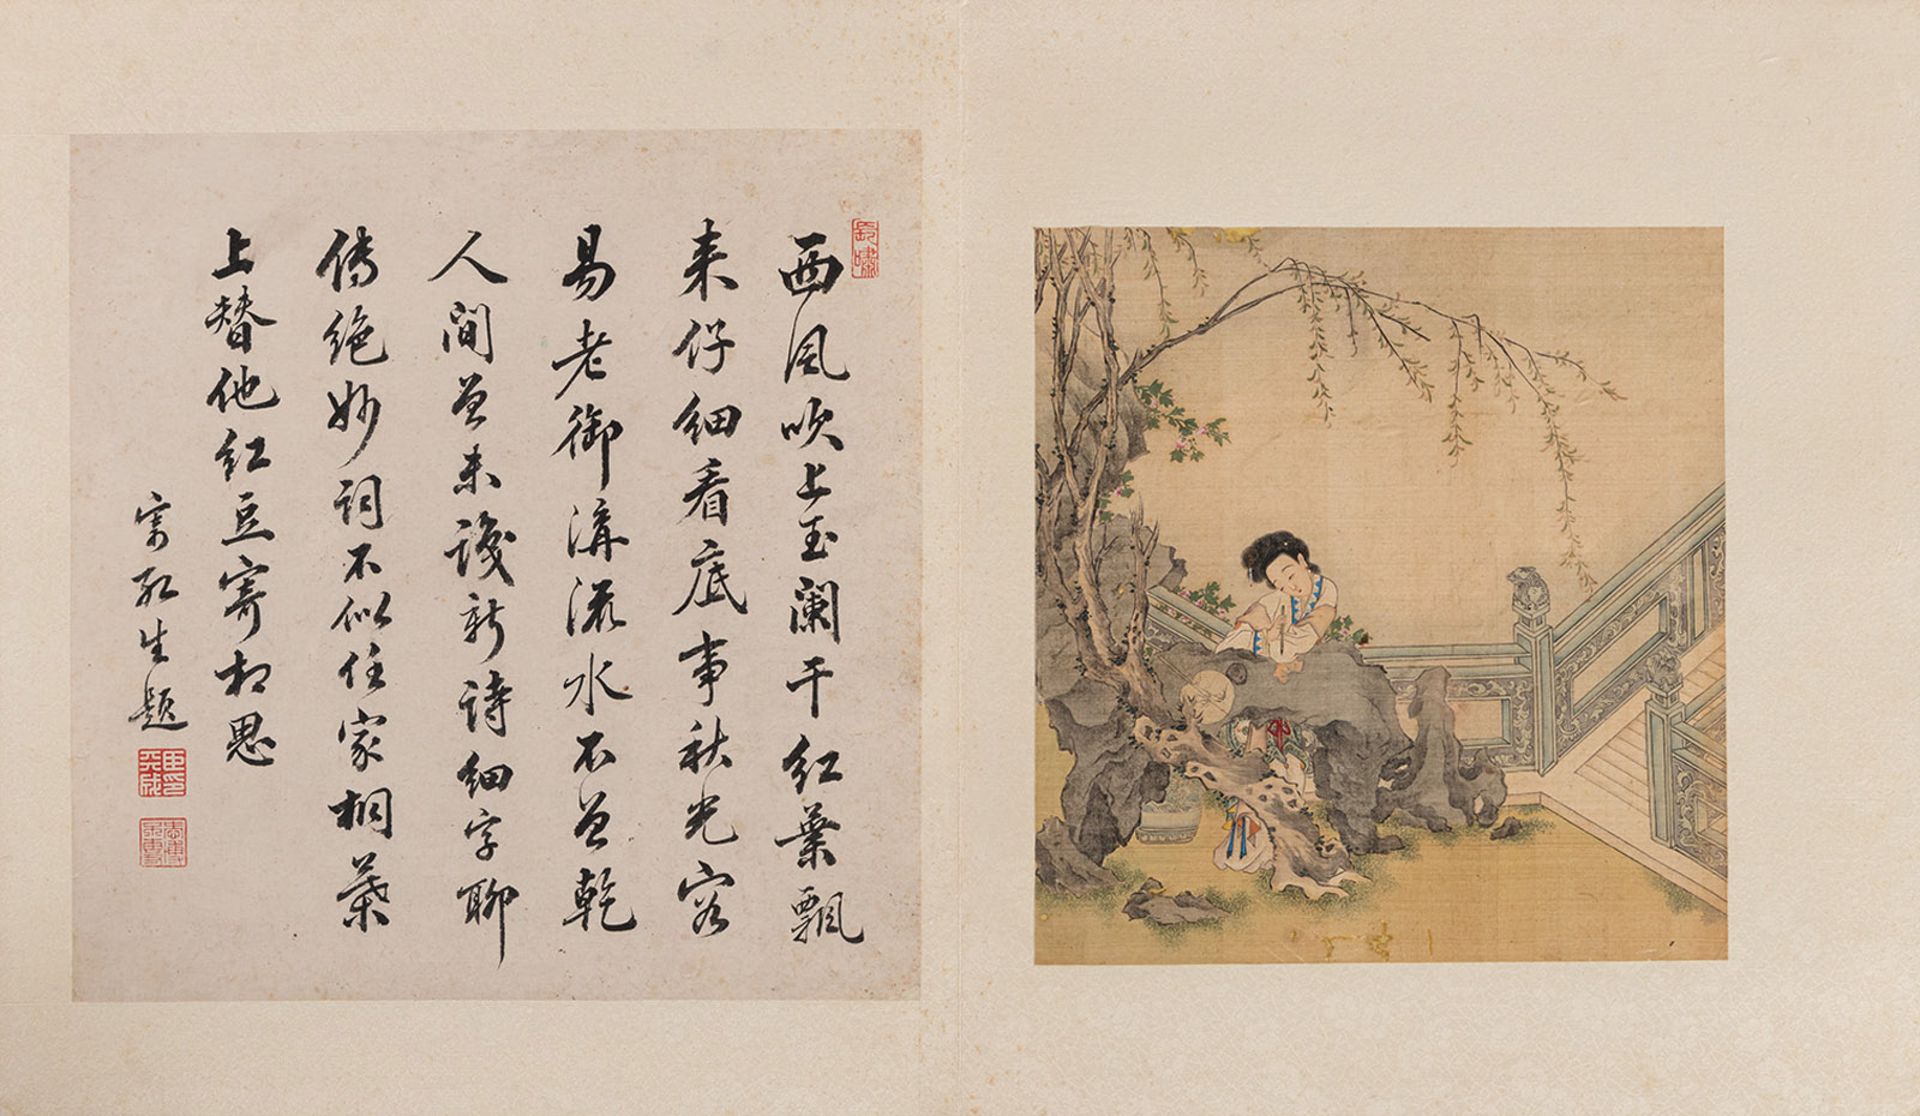 長嘯
西風吹上玉闌干紅葉飄
来仔細看底事秋光容
易老御溝流水不曾乾
人間曾未識新詩細字聊
傳絕妙詞不似任家桐葉
上替他紅豆寄相思
生題